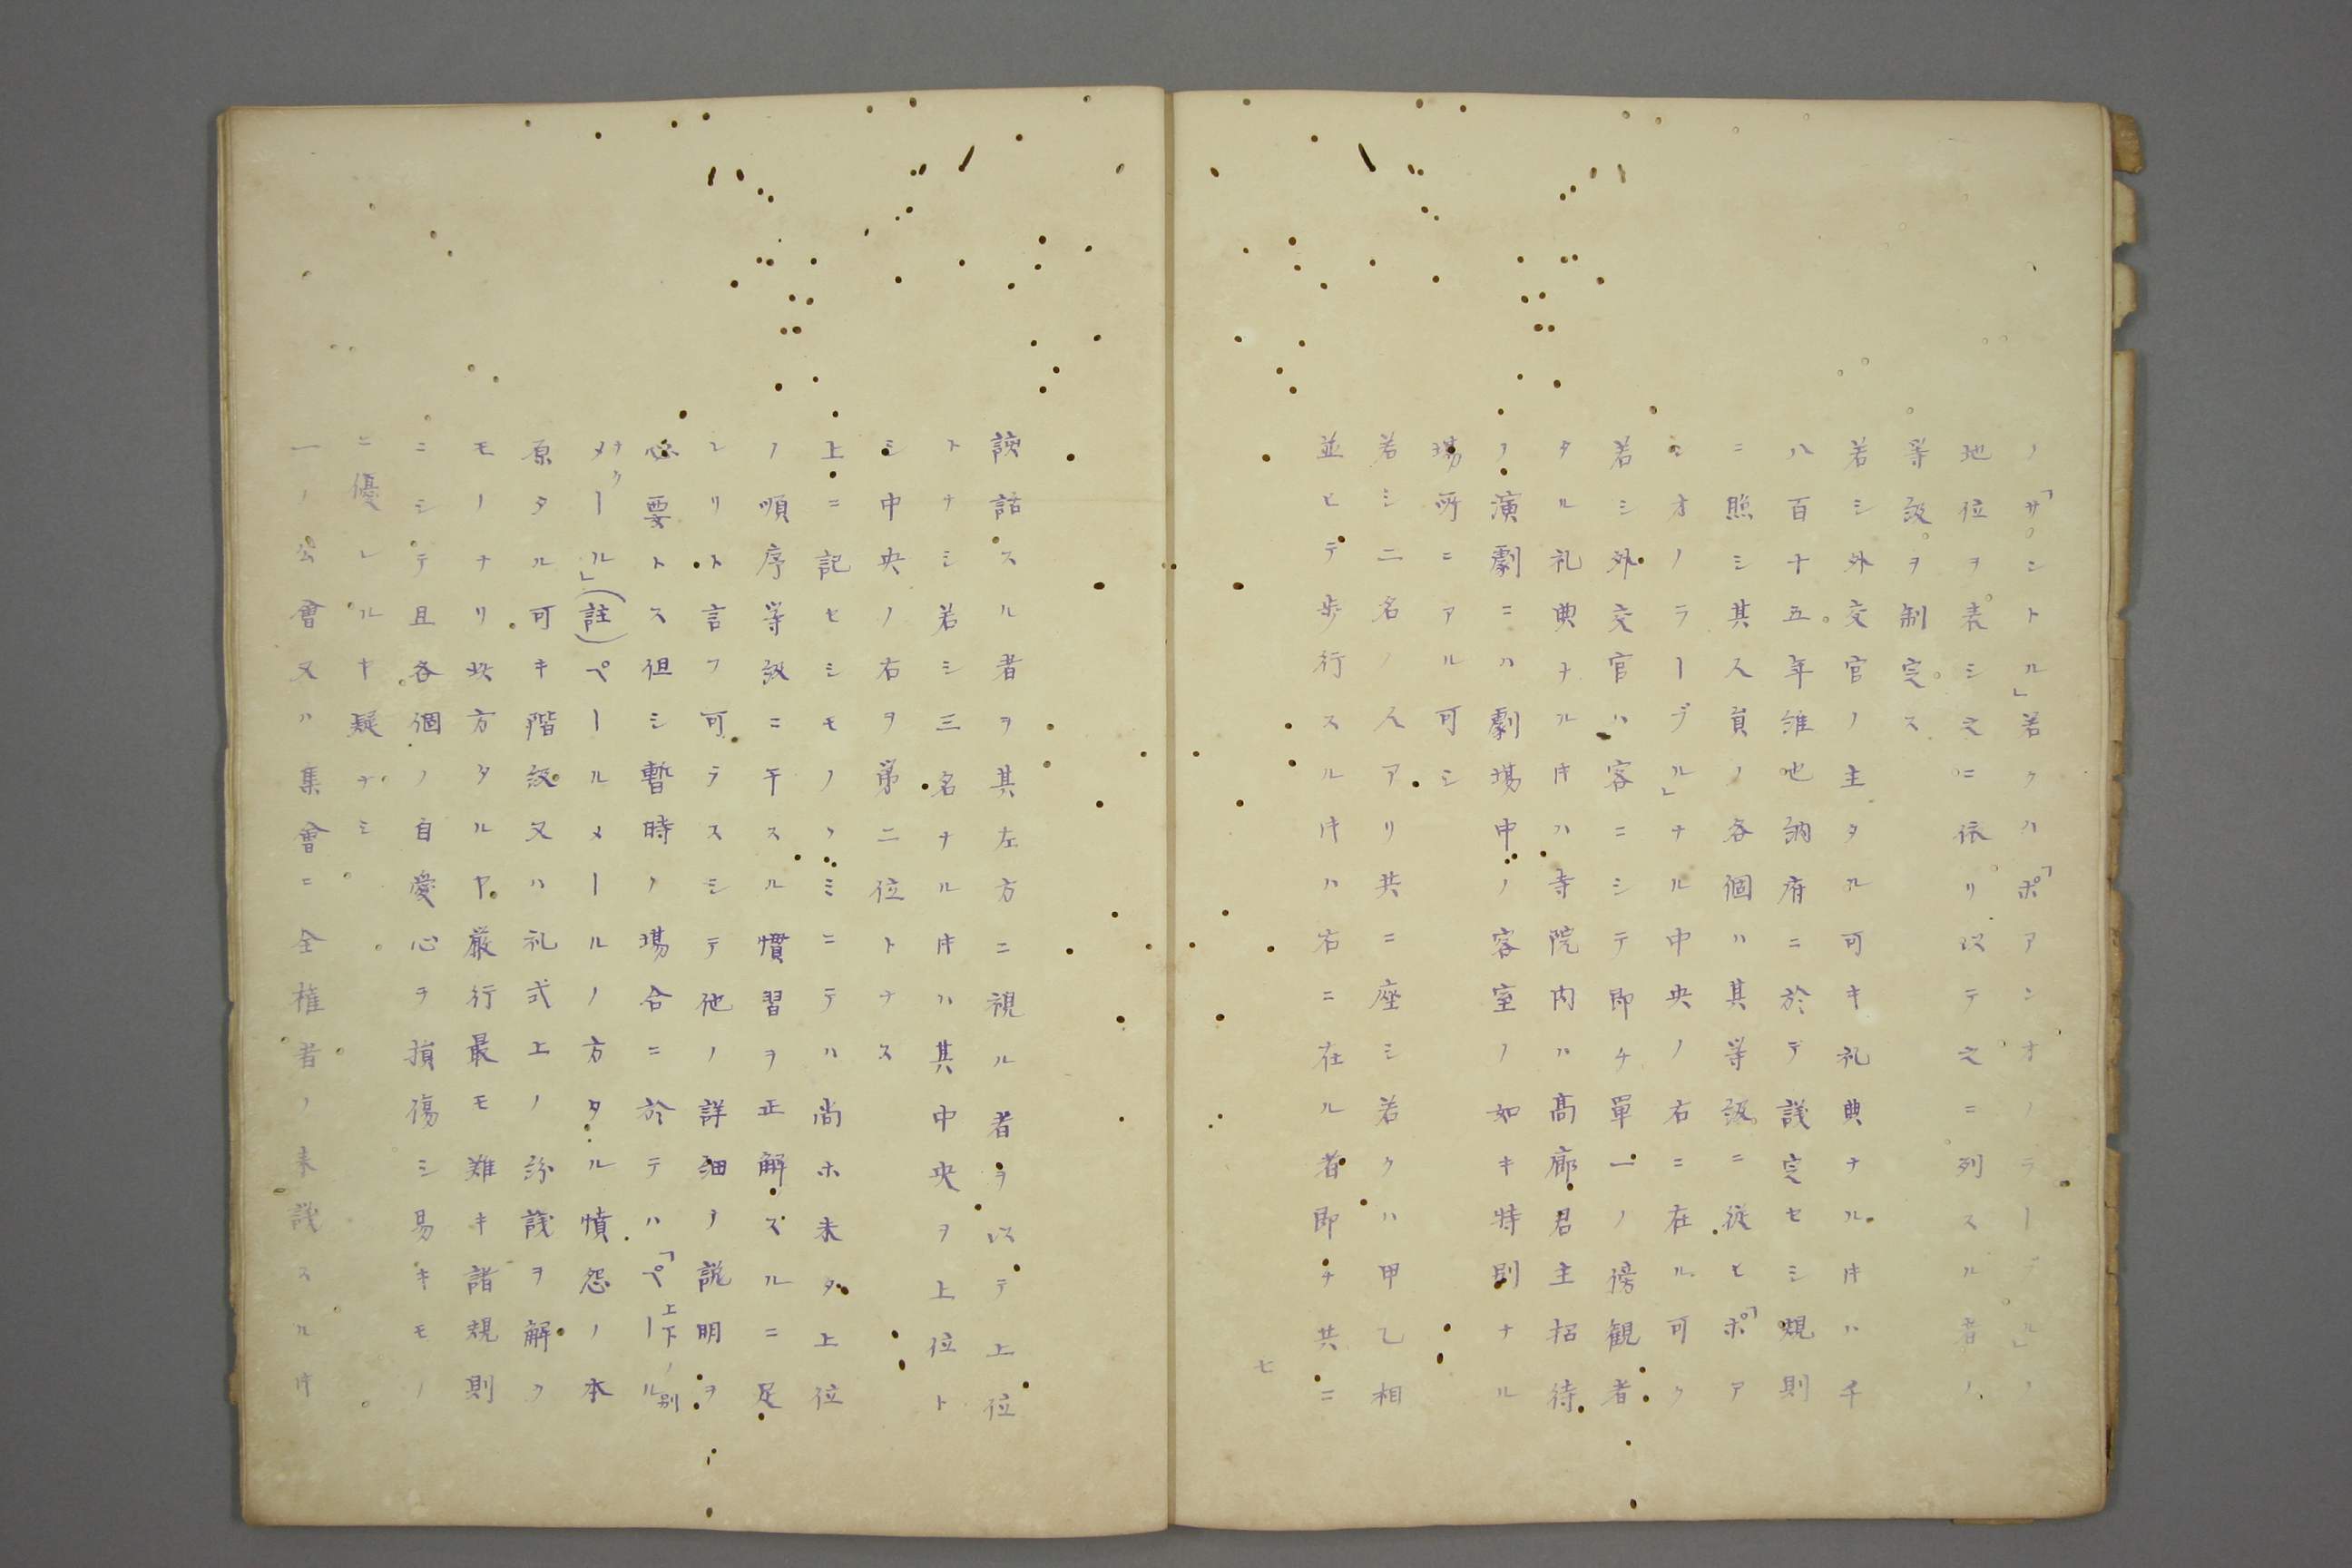 ノ「サントル」若クハ「ポアンオノラーブル」ノ
地位ヲ表シ之ニ依リ以テ之ニ列スル者ノ
等級ヲ制定ス
若シ外交官ノ主タル可キ礼典ナルキハ千
八百十五年維也納府ニ於テ議定セシ規則
ニ照シ其人員ノ各個ハ其等級ニ従ヒ「ポア
ンオノラーブル」ナル中央ノ右ニ在ル可ク
若シ外交官ハ客ニシテ即チ単一ノ傍観者
タル礼典ナルキハ寺院内ハ高廊君主招待
ノ演劇ニハ劇場中ノ客室ノ如キ特別ナル
場所ニアル可シ
若シ二名ノ人アリ共ニ座シ若クハ甲乙相
並ヒテ歩行スルキハ右ニ在ル者即チ共ニ
七
談話スル者ヲ其左方ニ視ル者ヲ以テ上位
トナシ若シ三名ナルキハ其中央ヲ上位ト
シ中央ノ右ヲ第二位トナス
上ニ記セシモノノミニテハ尚ホ未タ上位
ノ順序等級ニ干スル慣習ヲ正解スルニ足
レリト言フ可ラスシテ他ノ詳細ノ説明ヲ
必要トス但シ暫時ノ場合ニ於テハ「ペール
上下ノ別
メール」(註)ペールメールノ方タル憤怨ノ本
ナク
原タル可キ階級又ハ礼式上ノ紛議ヲ解ク
モノナリ此方タルヤ厳行最モ難キ諸規則
ニシテ且各個ノ自愛心ヲ損傷シ易キモノ
ニ優レルヤ疑ナシ
一ノ公會又ハ集會ニ全権者ノ来議スルキ